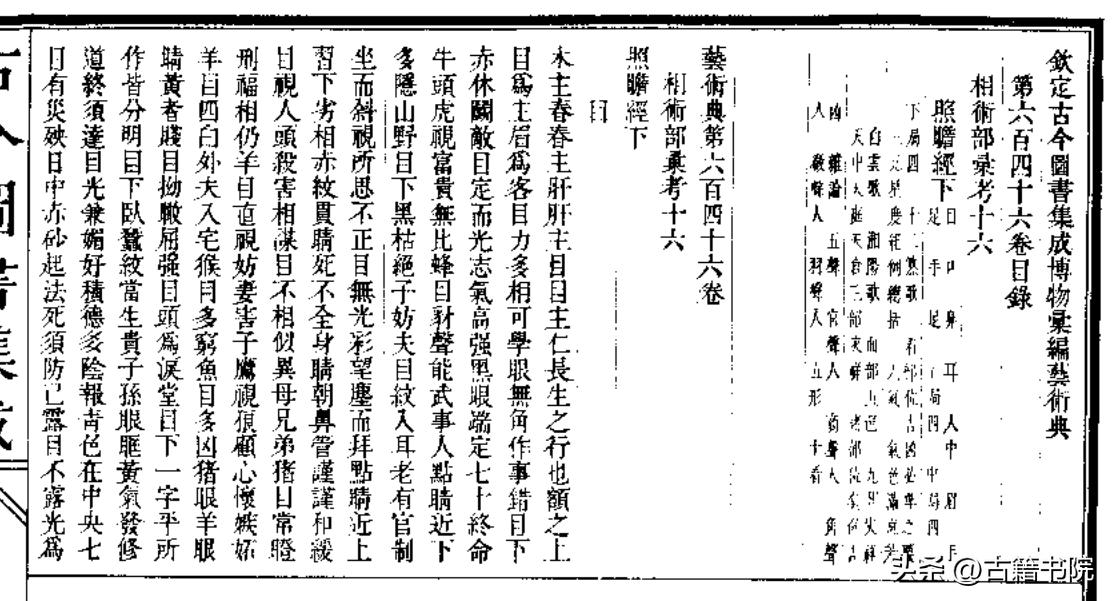 欽定古今圖書集成博物彙編藝術典
第六百四十六卷目錄
相術部彙考十六
照瞻經下 目 口 身 耳 人中 眉 手
足 手 足 局四 中局四
下局四
湘陽歌 面部五色
雜論 五聲 宮聲人 商聲人 角聲
人 徵聲人 羽聲人 五形 十看
藝術典第六百四十六卷
相術部彙考十六
照瞻經下
目
木主春春主肝肝主目目主仁長生之行也額之上
目爲主眉爲客目力多相可學眼無角作事錯目下
赤休鬭敵目定而光志氣高强黑眼端定七十終命
牛頭虎視富貴無比蜂目豺聲能武事人點睛近下
多隱山野目下黑枯絕子妨夫目紋入耳老有官制
坐而斜視所思不正目無光彩望塵而拜點睛近上
習下劣相赤紋貫睛死不全身睛朝鼻管謹謹和緩
目視人頭殺害相謀目不相似異母兄弟猪目常瞪
刑福相仍羊目直視妨妻害子鷹視狼顧心懷嫉妬
羊目四白外夫入宅猴目多窮魚目多凶猪眼羊眼
睛黃者賤目拗皦屈强目頭爲淚堂目下一字平所
作皆分明目下臥蠶紋當生貴子孫眼眶黃氣發修
道終須達目光兼媚好積德多陰報靑色在中央七
日有災殃目中赤砂起法死須防己露目不露光爲
头条 @古籍书院